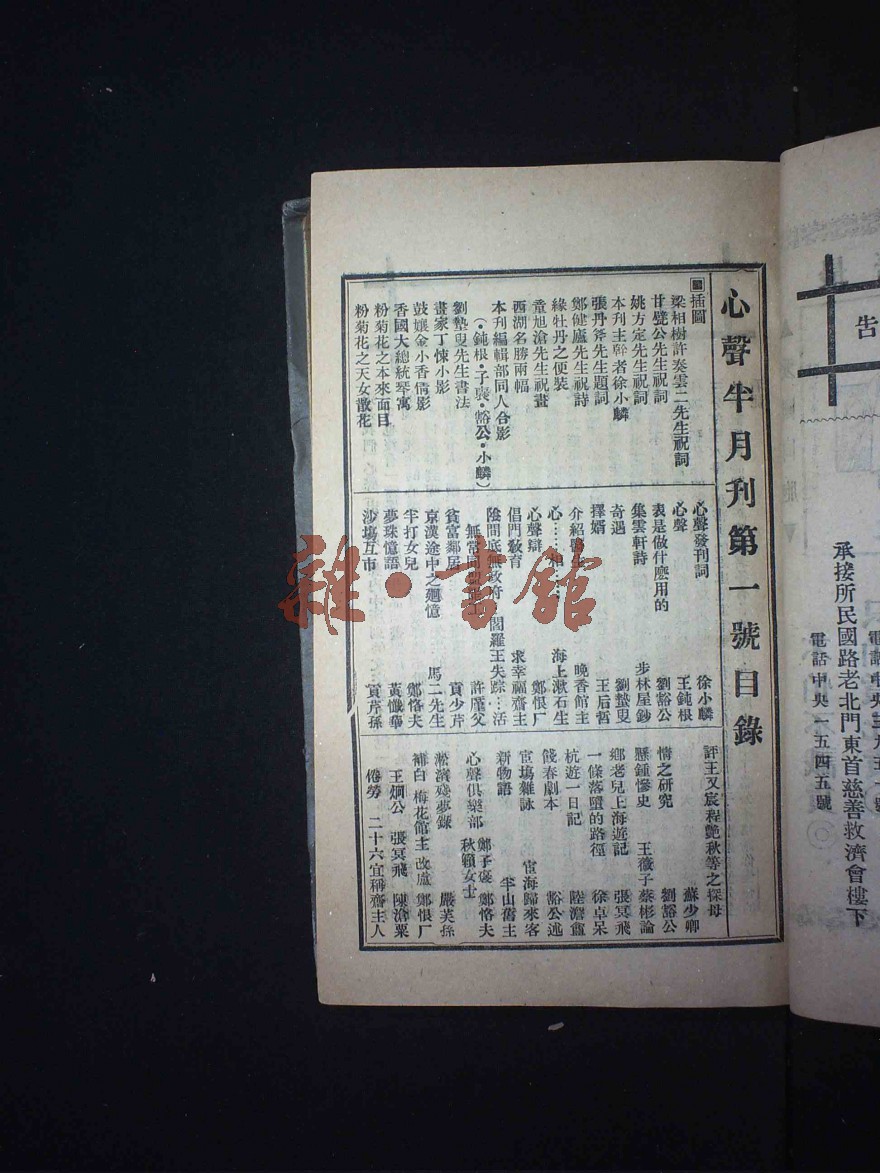 心聲半月刊第一號目錄
插圖
梁相樹許奏雲二先生祝詞
甘璧公先生祝詞
姚方定先生祝詞
本刊主幹者徐小麟
張丹斧先生題詞
鄭健廬先生祝詩
綠牡丹之便裝
童旭滄先生祝畫
西湖名勝兩幅
本刊編輯部同人合影
(・鈍根・子褒・豁公・小麟)
劉蟄叟先生書法
畫家丁悚小影
鼓孃金小香倩影
香國大總統琴寓
粉菊花之本來面目
粉菊花之天女散花
心聲發刊詞 徐小麟
心聲 王鈍根
表是做什麽用的 劉豁公
集雲軒詩 步林屋鈔
奇遇 劉蟄叟
擇婿 王后哲
介紹 晚香館主
心……和…… 海上漱石生
心聲辯 鄭恨厂
倡門敎育 求幸福齋主
陰間底無政府 閻羅王失踪…活
無常同 許廑父
貧富鄰居 貢少芹
京漢途中之迴憶 馬二先生
牛打女兒 鄭恪夫
夢珠憶語 黃懺華
沙塲互市 貢芹孫
評王又宸程艷秋等之探母
蘇少卿
情之硏究 劉豁公
懸鍾慘史 王薇子 秦彬論
鄉老兒上海遊記 張冥飛
一條落墮的路徑 徐卓呆
杭遊一日記 陸澹盦
餞春劇本 豁公述
宦塲雜詠 宦海歸來客
新物語 半山舊主
心聲俱樂部 鄭子褒 鄭恪夫
秋顧女士
淞濱殘夢錄 嚴芙孫
補白 梅花館主 改廬 鄭恨厂
王烱公 張冥飛 陳滄粟
倦勞 二十六宜稱齋主人
雜・書館
告
電話中央三九五一號
承接所民國路老北門東首慈善救濟會樓下
電話中央一五四五號